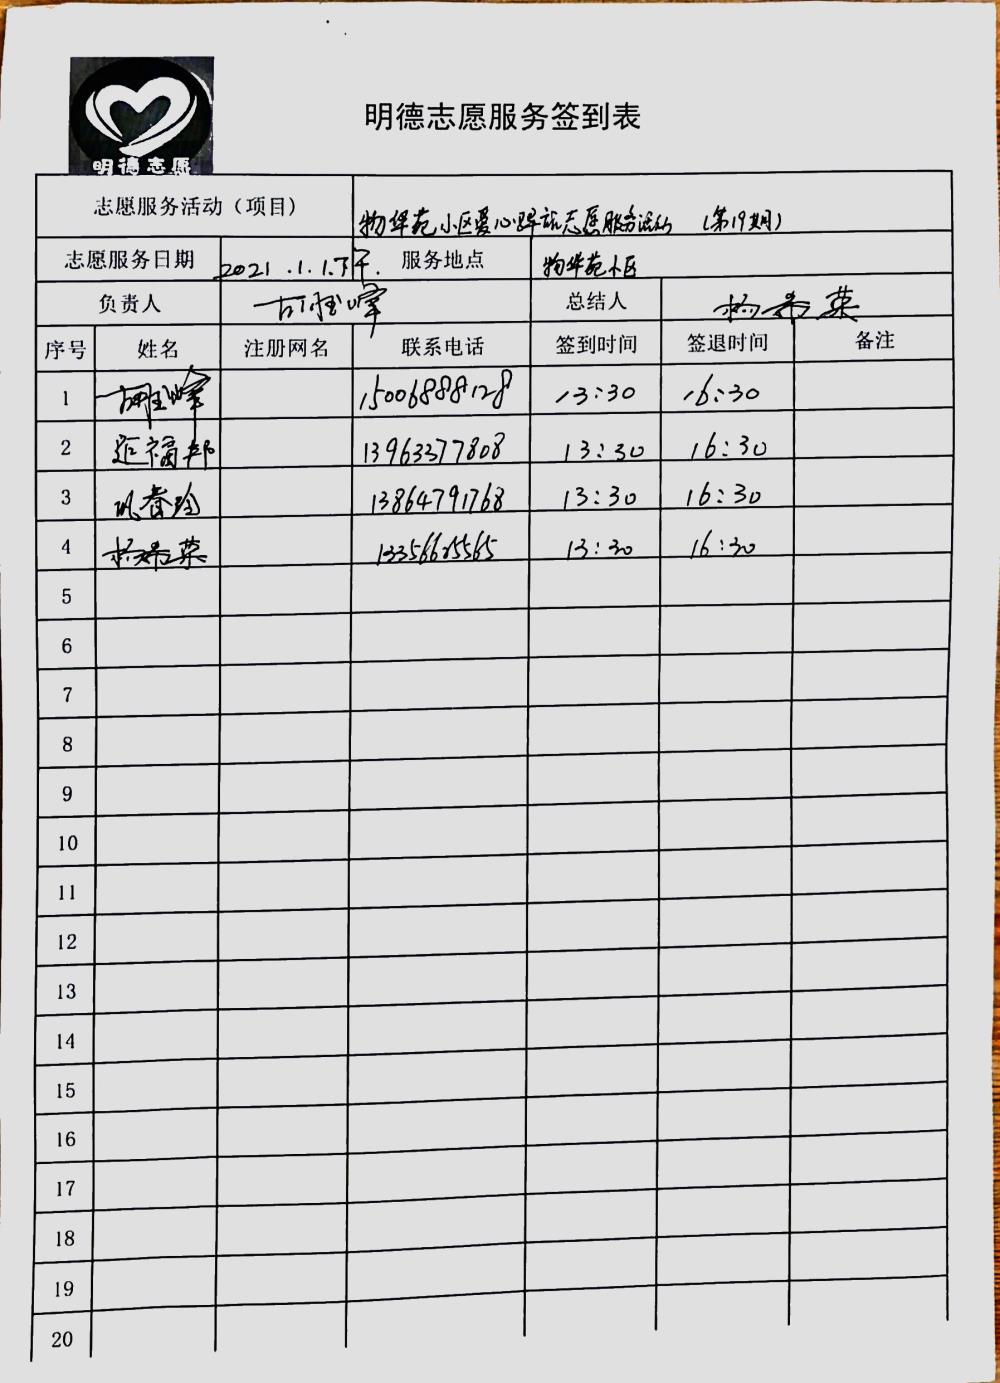 明德志愿服务签到表
明德志愿
志愿服务活动（项目） 物华苑小区爱心驿站志愿服务活动 （第19期）
志愿服务日期 2021.1.1.下午. 服务地点 物华苑小区
负责人 胡桂峰 总结人 杨希荣
序号 姓名 注册网名 联系电话 签到时间 签退时间 备注
1 胡桂峰 15006888128 13:30 16:30
2 福邦 13963377808 13:30 16:30
3 13864791768 13:30 16:30
4 杨希荣 13356625565 13:30 16:30
5
6
7
8
9
10
11
12
13
14
15
16
17
18
19
20